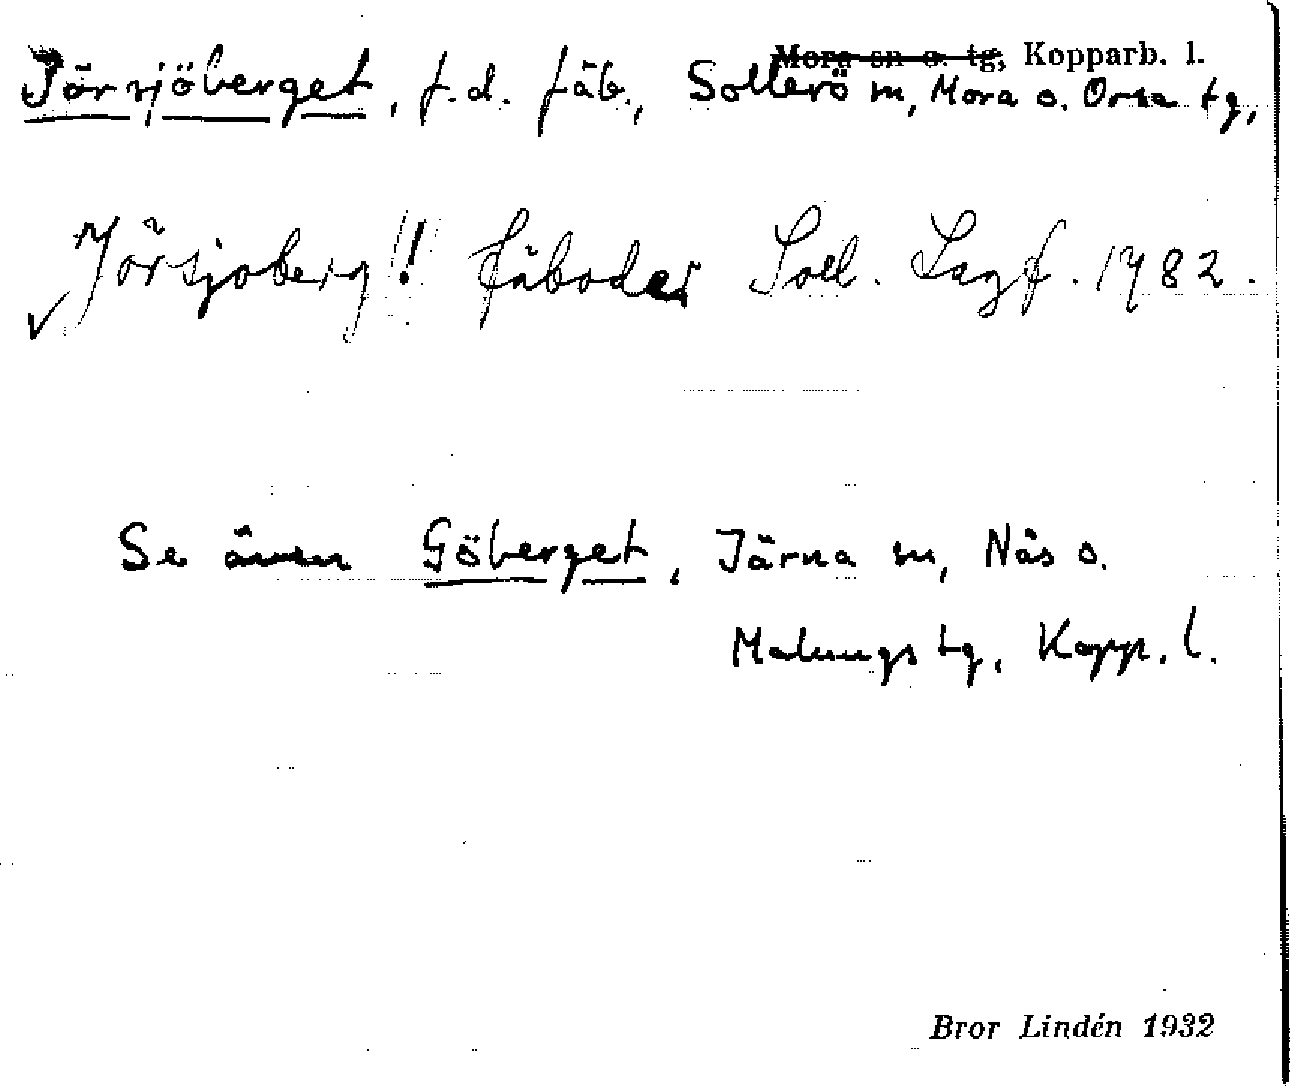 Mora sn o. tg, Kopparb. l.
Jörsjöberget, f.d. fäb., Sollerö sn, Mora o. Orsa tg,
Jörsjoberg!! fäboder Soll. Lagf. 1782.
Se även Göberget, Järna sn, Nås o.
Malungs tg, Kopp. l.
Bror Lindén 1932